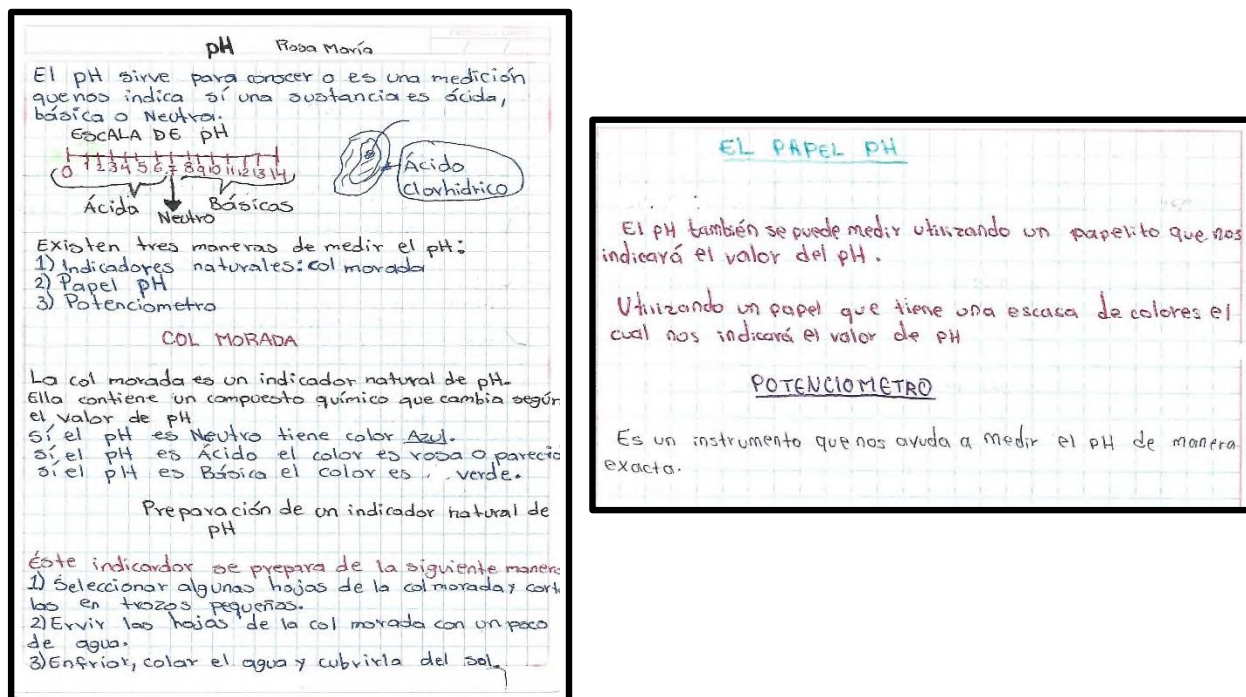 pH Rosa María
El pH sirve para conocer o es una medición
que nos indica sí una sustancia es ácida,
básica o Neutra.
ESCALA DE pH
0 1 2 3 4 5 6 7 8 9 10 11 12 13 14
Ácida Neutro Básicas
Ácido
clorhidrico
Existen tres maneras de medir el pH:
1) Indicadores naturales: col morada
2) Papel pH
3) Potenciometro
COL MORADA
La col morada es un indicador natural de pH.
Ella contiene un compuesto químico que cambia según
el valor de pH
sí el pH es Neutro tiene color Azul.
sí el pH es Ácido el color es rosa o parecio
sí el pH es Básica el color es verde.
Preparación de un indicador natural de
pH
Éste indicardor se prepara de la siguiente manera
1) Seleccionar algunas hojas de la col morada y cort
las en trozos pequeñas.
2) Ervir las hojas de la col morada con un poco
de agua.
3) Enfriar, colar el agua y cubrirla del sol.
EL PAPEL PH
El pH también se puede medir utilizando un papelito que nos
indicará el valor del pH.
Utilizando un papel que tiene una escasa de colores el
cual nos indicará el valor de PH
POTENCIOMETRO
Es un instrumento que nos ayuda a medir el pH de manera
exacta.